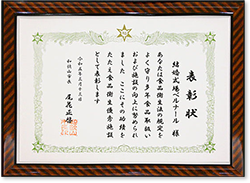 表彰状
結婚式場ベルナール 様
あなたは食品衛生法の規定を
よく守り多年食品取扱い
および施設の向上に努められ
ました ここにその功績を
たたえ食品衛生優秀施設
として表彰します
和歌山市長
尾花正啓